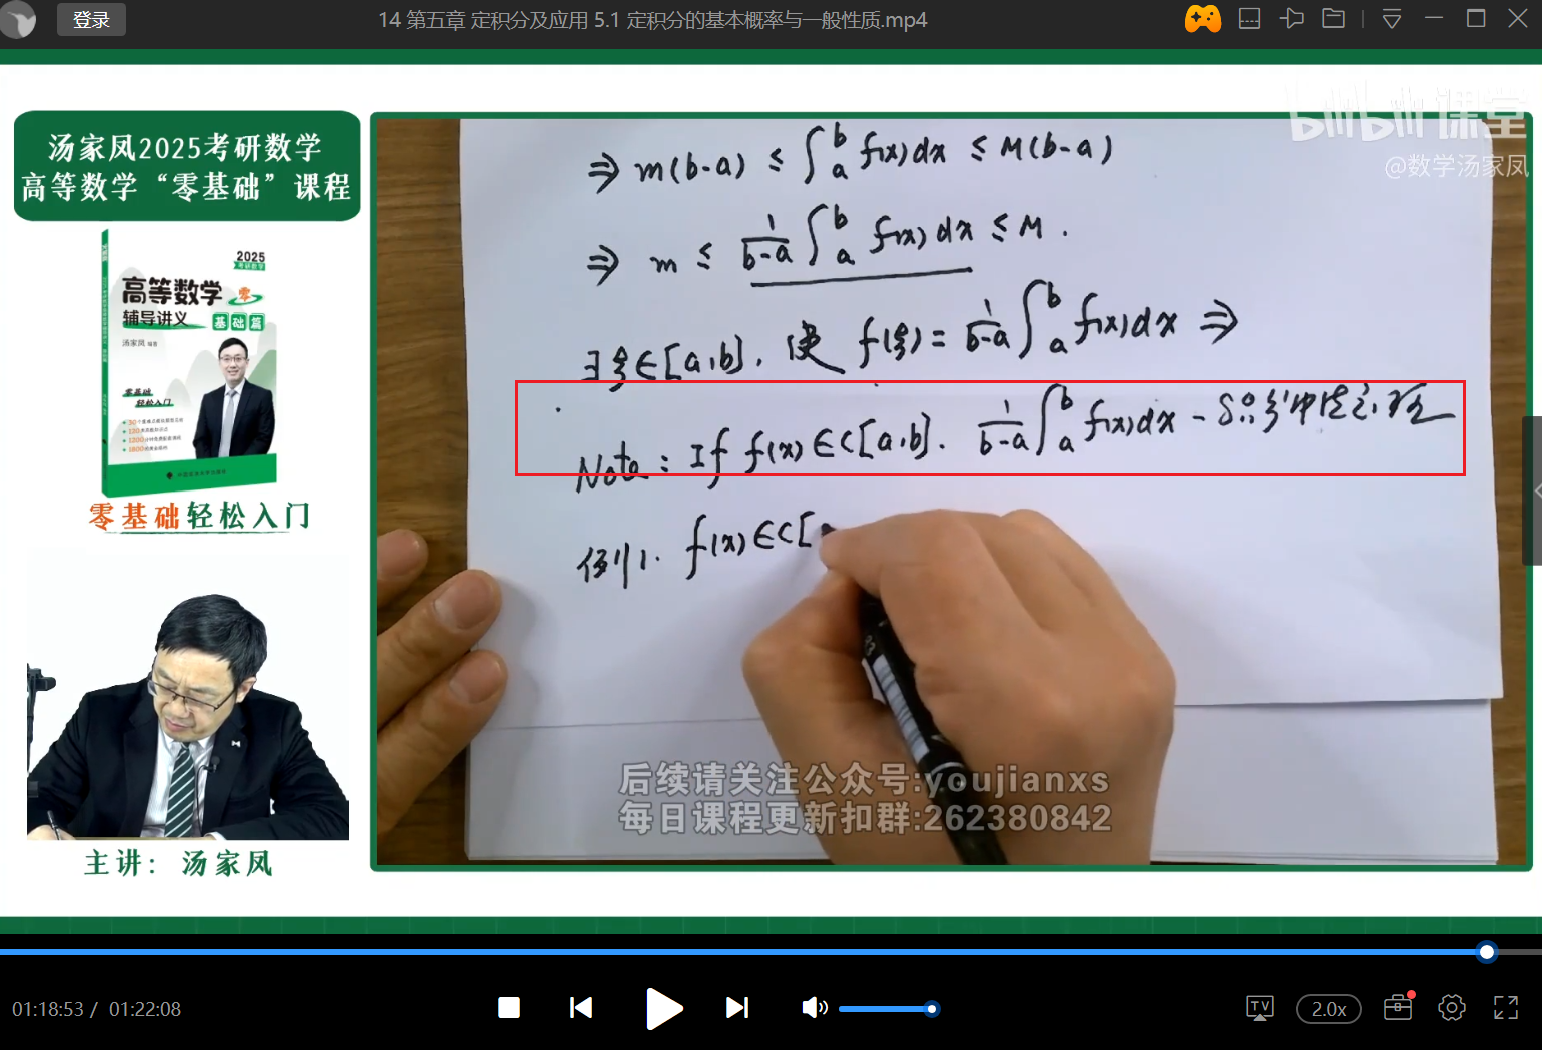 登录
14 第五章 定积分及应用 5.1 定积分的基本概率与一般性质.mp4
汤家凤2025考研数学
高等数学“零基础”课程
2025
考研数学
高等数学 零
辅导讲义 基础篇
汤家凤 编著
零基础
轻松入门
零基础轻松入门
主讲：汤家凤
bilibili 课堂
@数学汤家凤
⇒ m(b-a) ≤ ∫_a^b f(x)dx ≤ M(b-a)
⇒ m ≤ 1/(b-a) ∫_a^b f(x)dx ≤ M.
∃ξ∈[a,b], 使 f(ξ) = 1/(b-a) ∫_a^b f(x)dx ⇒
Note: If f(x)∈C[a,b]. 1/(b-a) ∫_a^b f(x)dx - 中值定理
例1. f(x)∈C[
后续请关注公众号:youjianxs
每日课程更新扣群:262380842
01:18:53 / 01:22:08
TV
2.0x